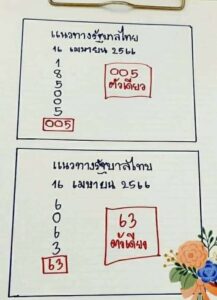 แนวทางรัฐบาลไทย
16 เมษายน 2566
1
8
5
0
0
5
005
005
ตัวเดียว
แนวทางรัฐบาลไทย
16 เมษายน 2566
6
0
6
3
63
63
ตัวเดียว